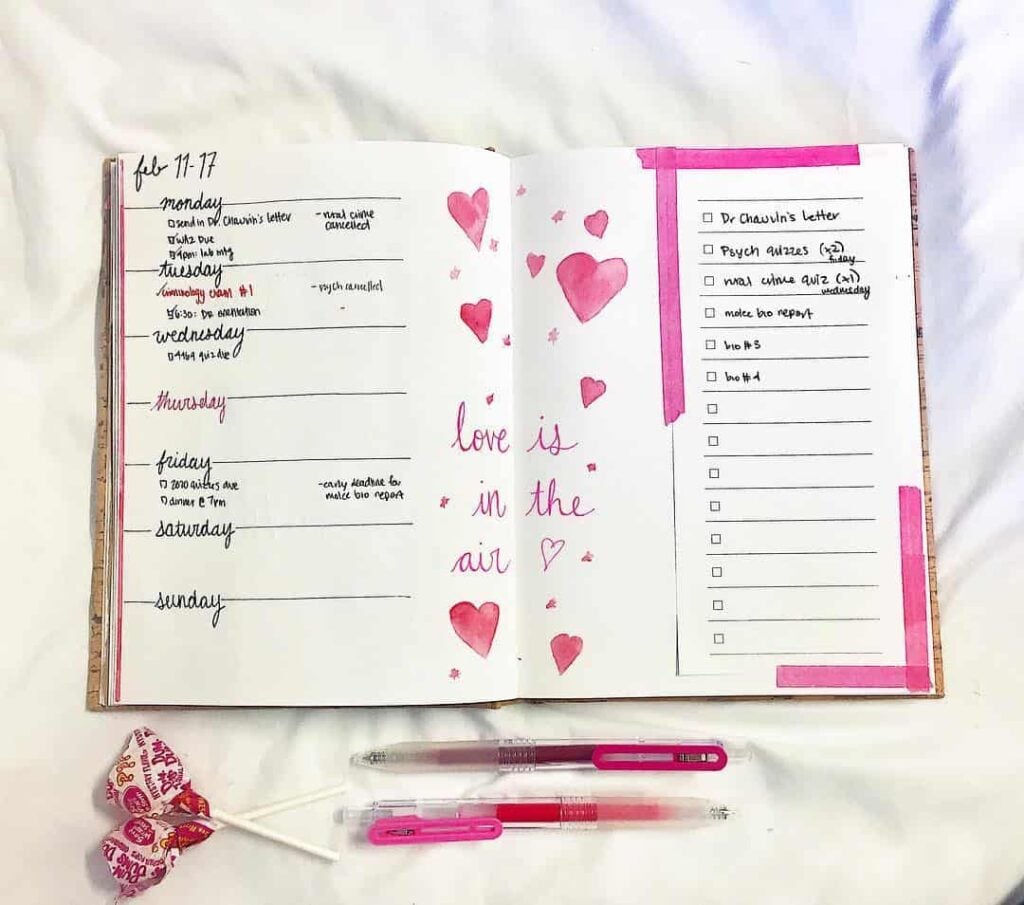 feb 11-17
monday
send in Dr. Chauvin's letter
WA2 Due
4pm: lab mtg
- rural crime
cancelled
tuesday
criminology exam #1
6:30: DR orientation
- psych cancelled
wednesday
4469 quiz due
thursday
friday
2070 quizzes due
dinner @ 7pm
- early deadline for
molec bio report
saturday
sunday
love is
in the
air
Dr Chauvin's letter
Psych quizzes (x2)
friday
rural crime quiz (x1)
wednesday
molec bio report
bio #3
bio #4
DUM
DUM
MYSTERY FLAVOR
DUM
DUMS